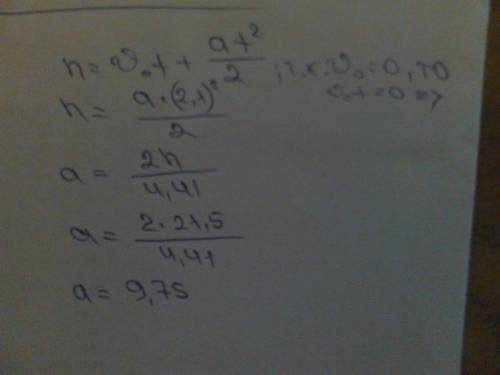 h = v₀t + at²/2 ; т.к. v₀ = 0, то
v₀t = 0 =>
h = a·(2,1)²/2
a = 2h/4,41
a = 2·21,5/4,41
a = 9,75